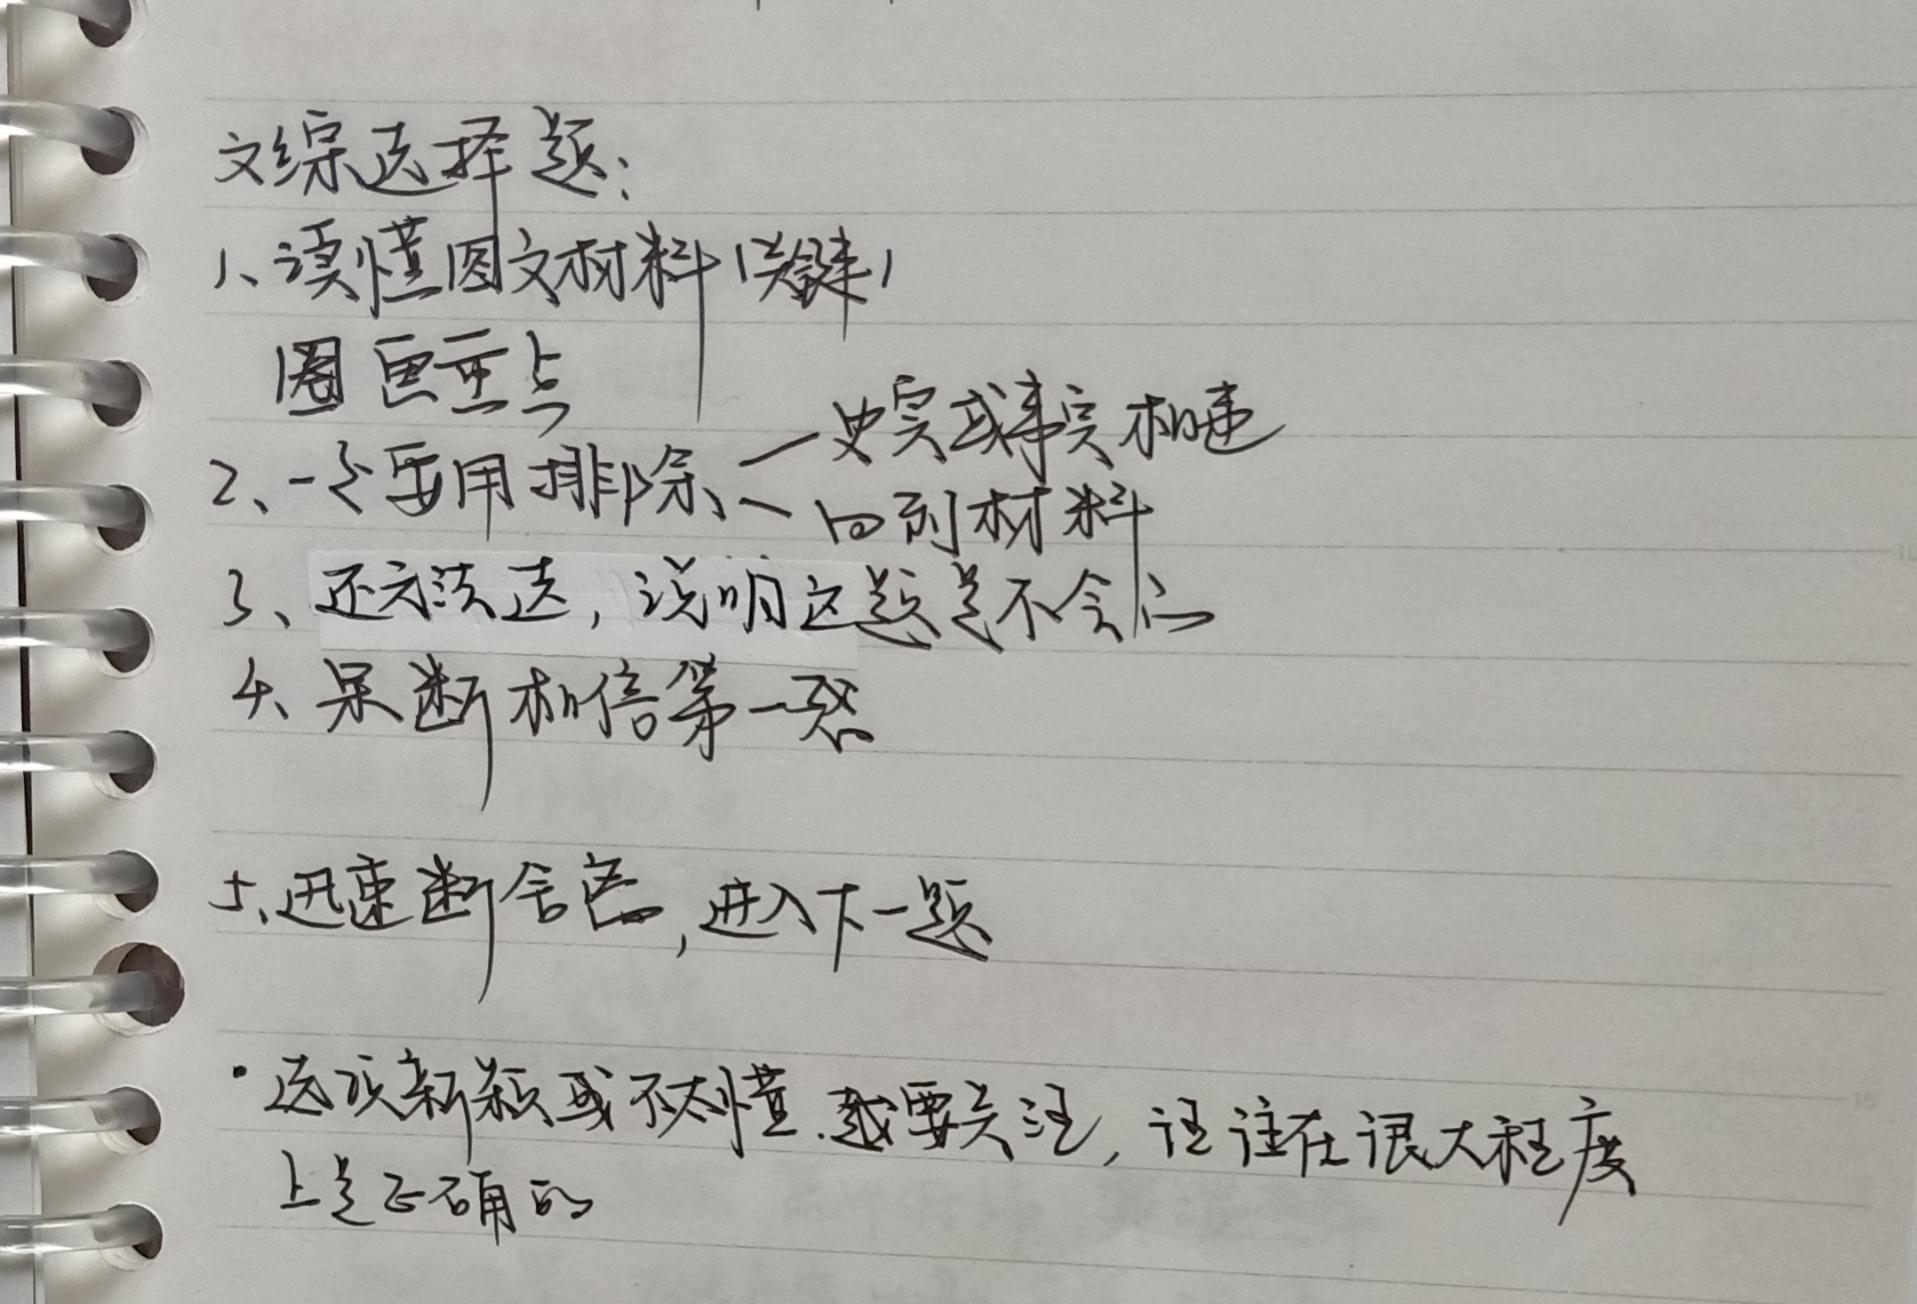 文综选择题：
1、读懂图文材料（关键）
圈画重点
2、一定要用排除、
史实或事实相违
回到材料
3、还无法选，说明这题是不会的
4、果断相信第一感
5、迅速断舍离，进入下一题
·选项新颖或不太懂、越要关注，往往在很大程度
上是正确的